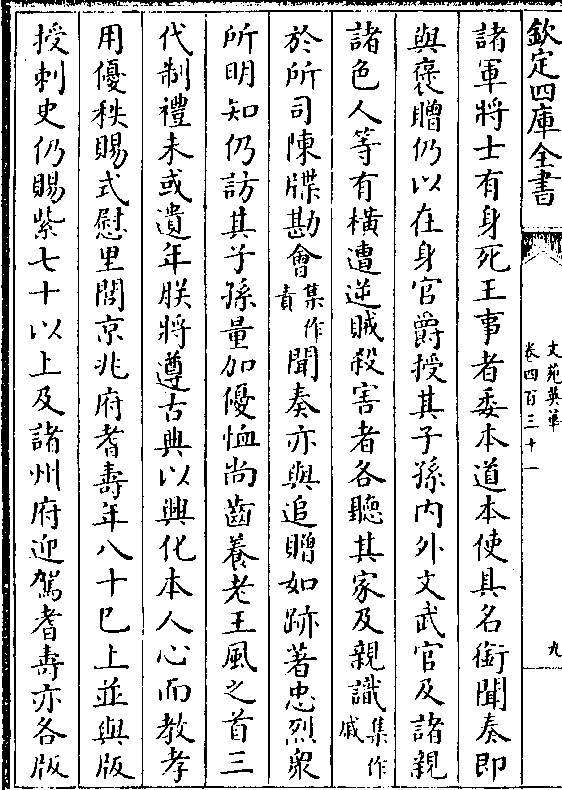 欽定四庫全書
文苑英華
卷四百三十一
九
諸軍將士有身死王事者委本道本使具名銜聞奏即
與褒贈仍以在身官爵授其子孫内外文武官及諸親
諸色人等有横遭逆賊殺害者各聽其家及親識集作戚
於所司陳牒勘會集作責聞奏亦與追贈如跡著忠烈衆
所明知仍訪其子孫量加優恤尚齒養老王風之首三
代制禮未或遺年朕將遵古典以興化本人心而教孝
用優秩賜式慰里閭京兆府耆壽年八十已上並與版
授刺史仍賜紫七十以上及諸州府迎駕耆壽亦各版